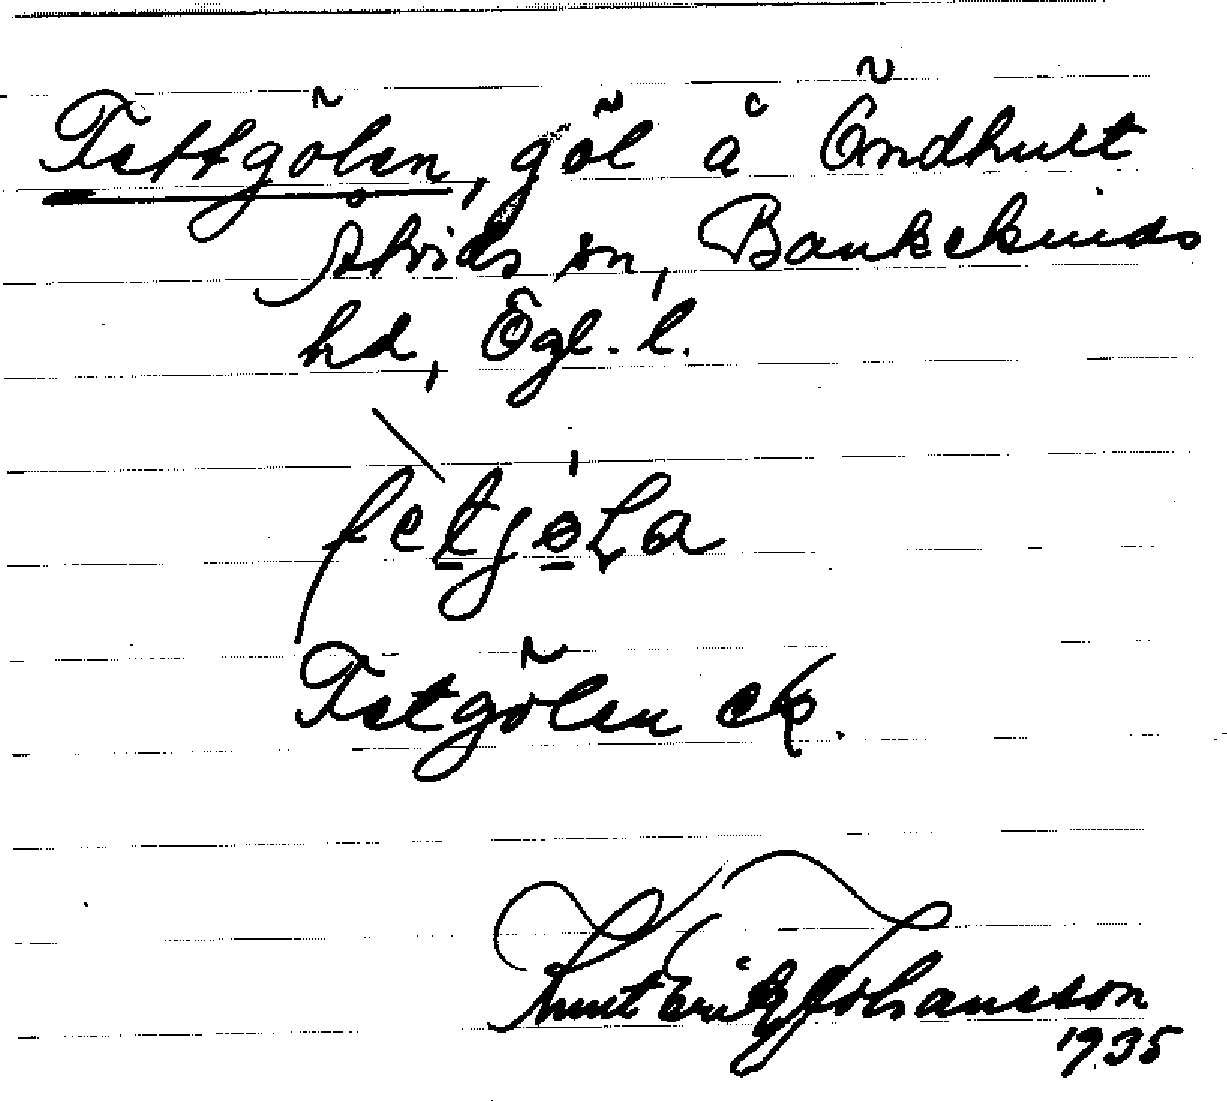 Fettgölen, göl å Öndhult
Åtvids sn, Bankekinds
hd, Ögl. l.
fetjøla
Fetgölen ek.
Knut Erik Johansson
1935